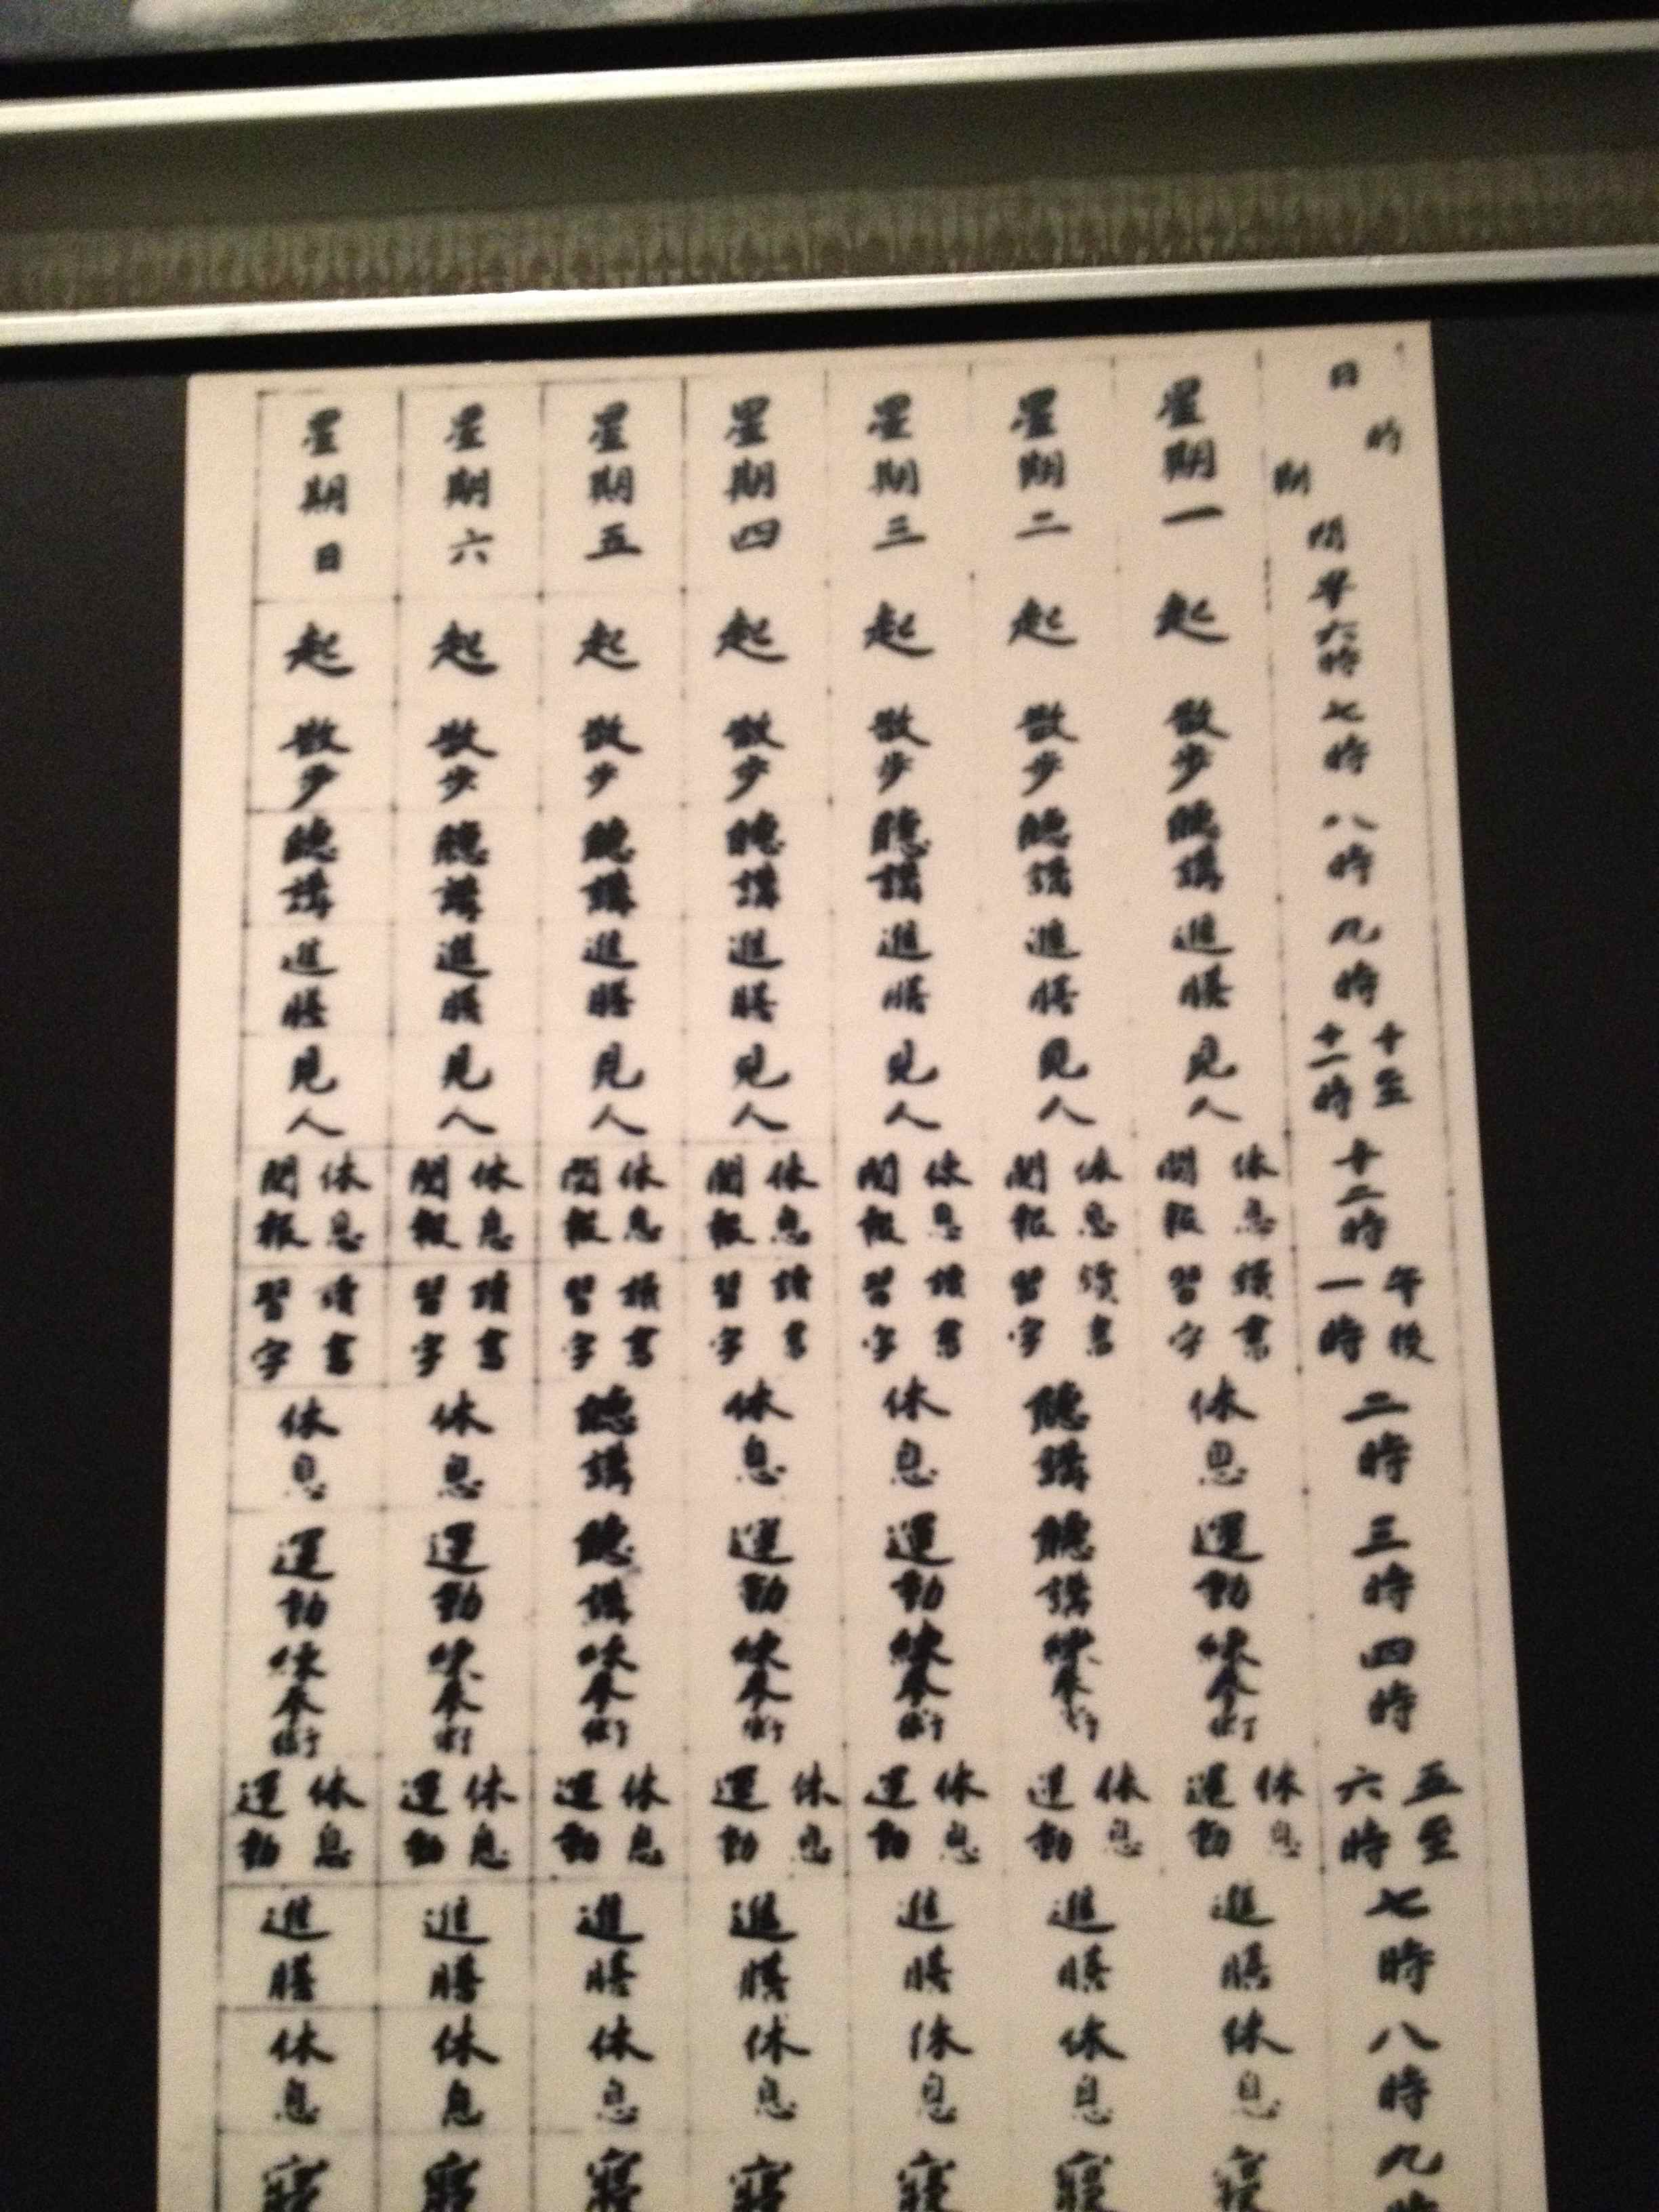 時間 日期 早六時 七時 八時 九時 十至十一時 十二時 午後一時 二時 三時 四時 五至六時 七時 八時 九時
星期一 起 散步 聽講 進膳 見人 休息閱報 讀書習字 休息 運動 術 休息運動 進膳 休息 寢
星期二 起 散步 聽講 進膳 見人 休息閱報 讀書習字 聽講 聽講 術 休息運動 進膳 休息 寢
星期三 起 散步 聽講 進膳 見人 休息閱報 讀書習字 休息 運動 術 休息運動 進膳 休息 寢
星期四 起 散步 聽講 進膳 見人 休息閱報 讀書習字 休息 運動 術 休息運動 進膳 休息 寢
星期五 起 散步 聽講 進膳 見人 休息閱報 讀書習字 聽講 聽講 術 休息運動 進膳 休息 寢
星期六 起 散步 聽講 進膳 見人 休息閱報 讀書習字 休息 運動 術 休息運動 進膳 休息 寢
星期日 起 散步 聽講 進膳 見人 休息閱報 讀書習字 休息 運動 術 休息運動 進膳 休息 寢